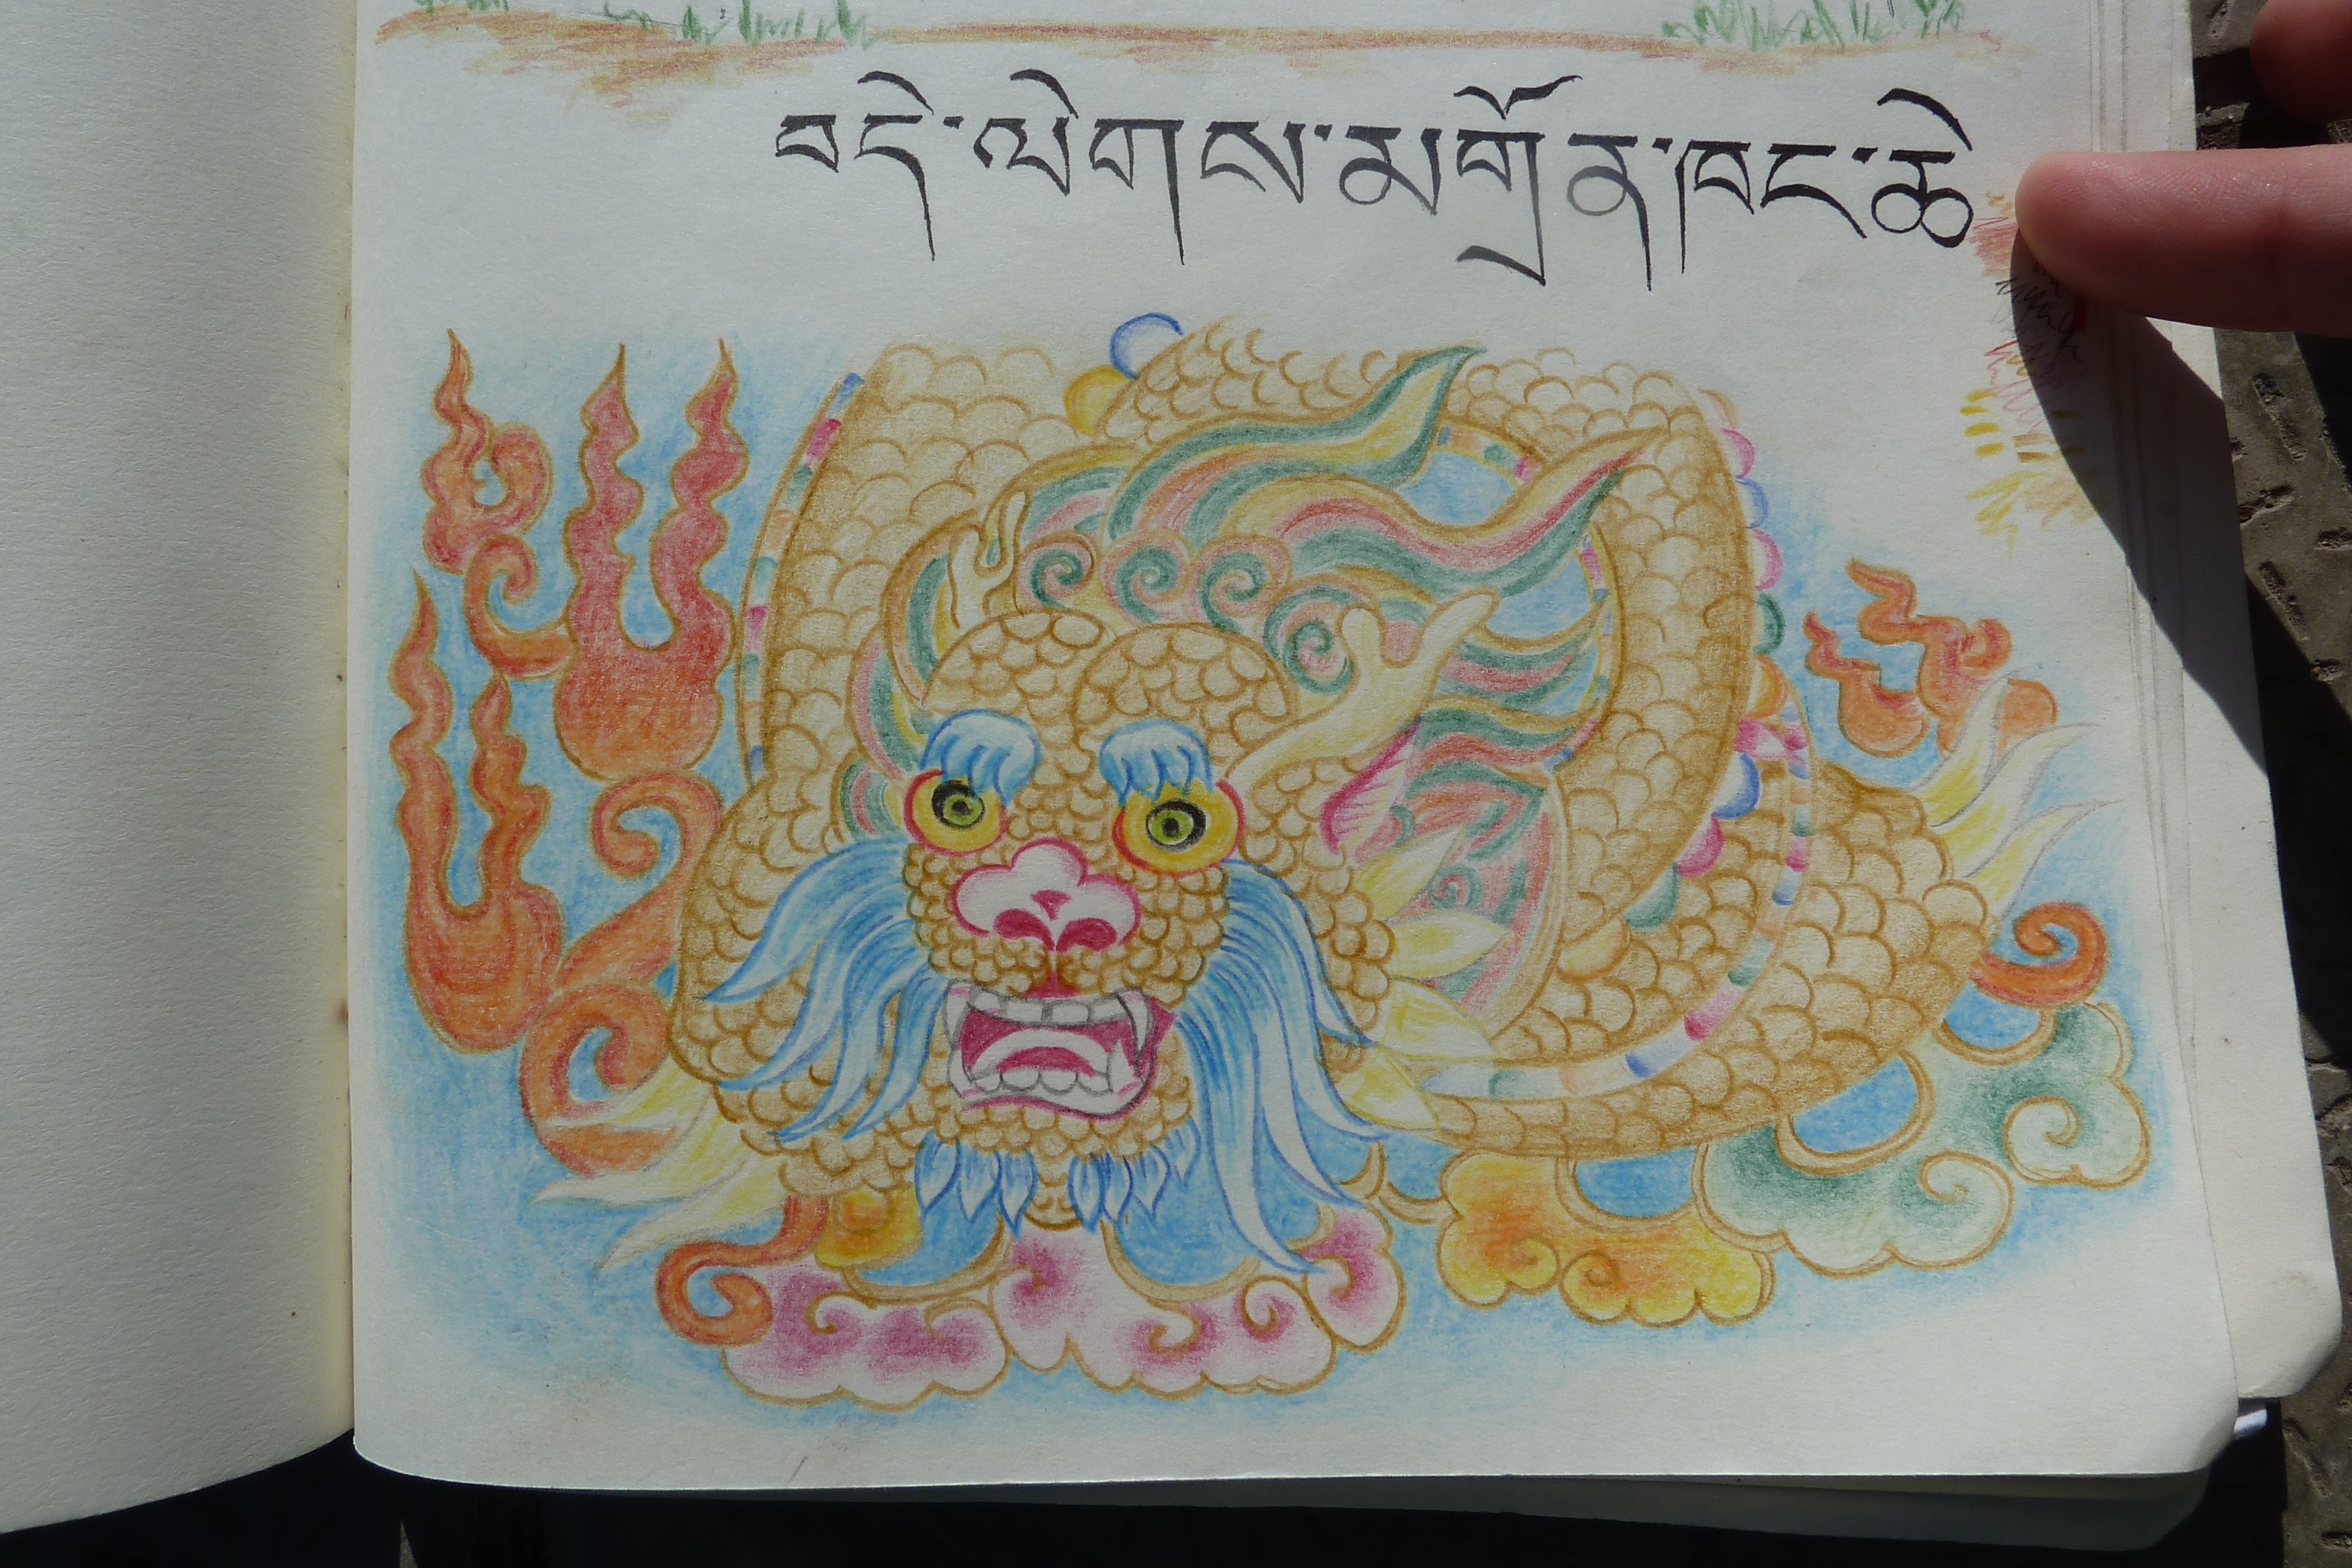 བདེ་ལེགས་མགྲོན་ཁང་ཆེ